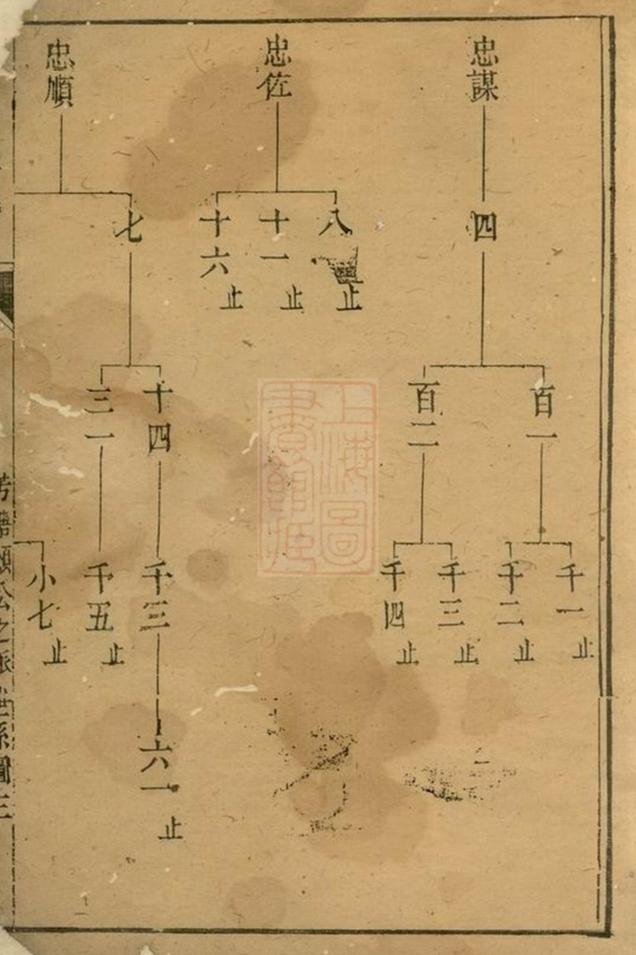 忠謀
四
百一
千一 止
千二 止
百二
千三 止
千四 止
忠佐
八 止
十一 止
十六 止
忠順
七
十四
千三
六一 止
三一
千五 止
小七 止
公之派世系圖三
上海圖
書館藏